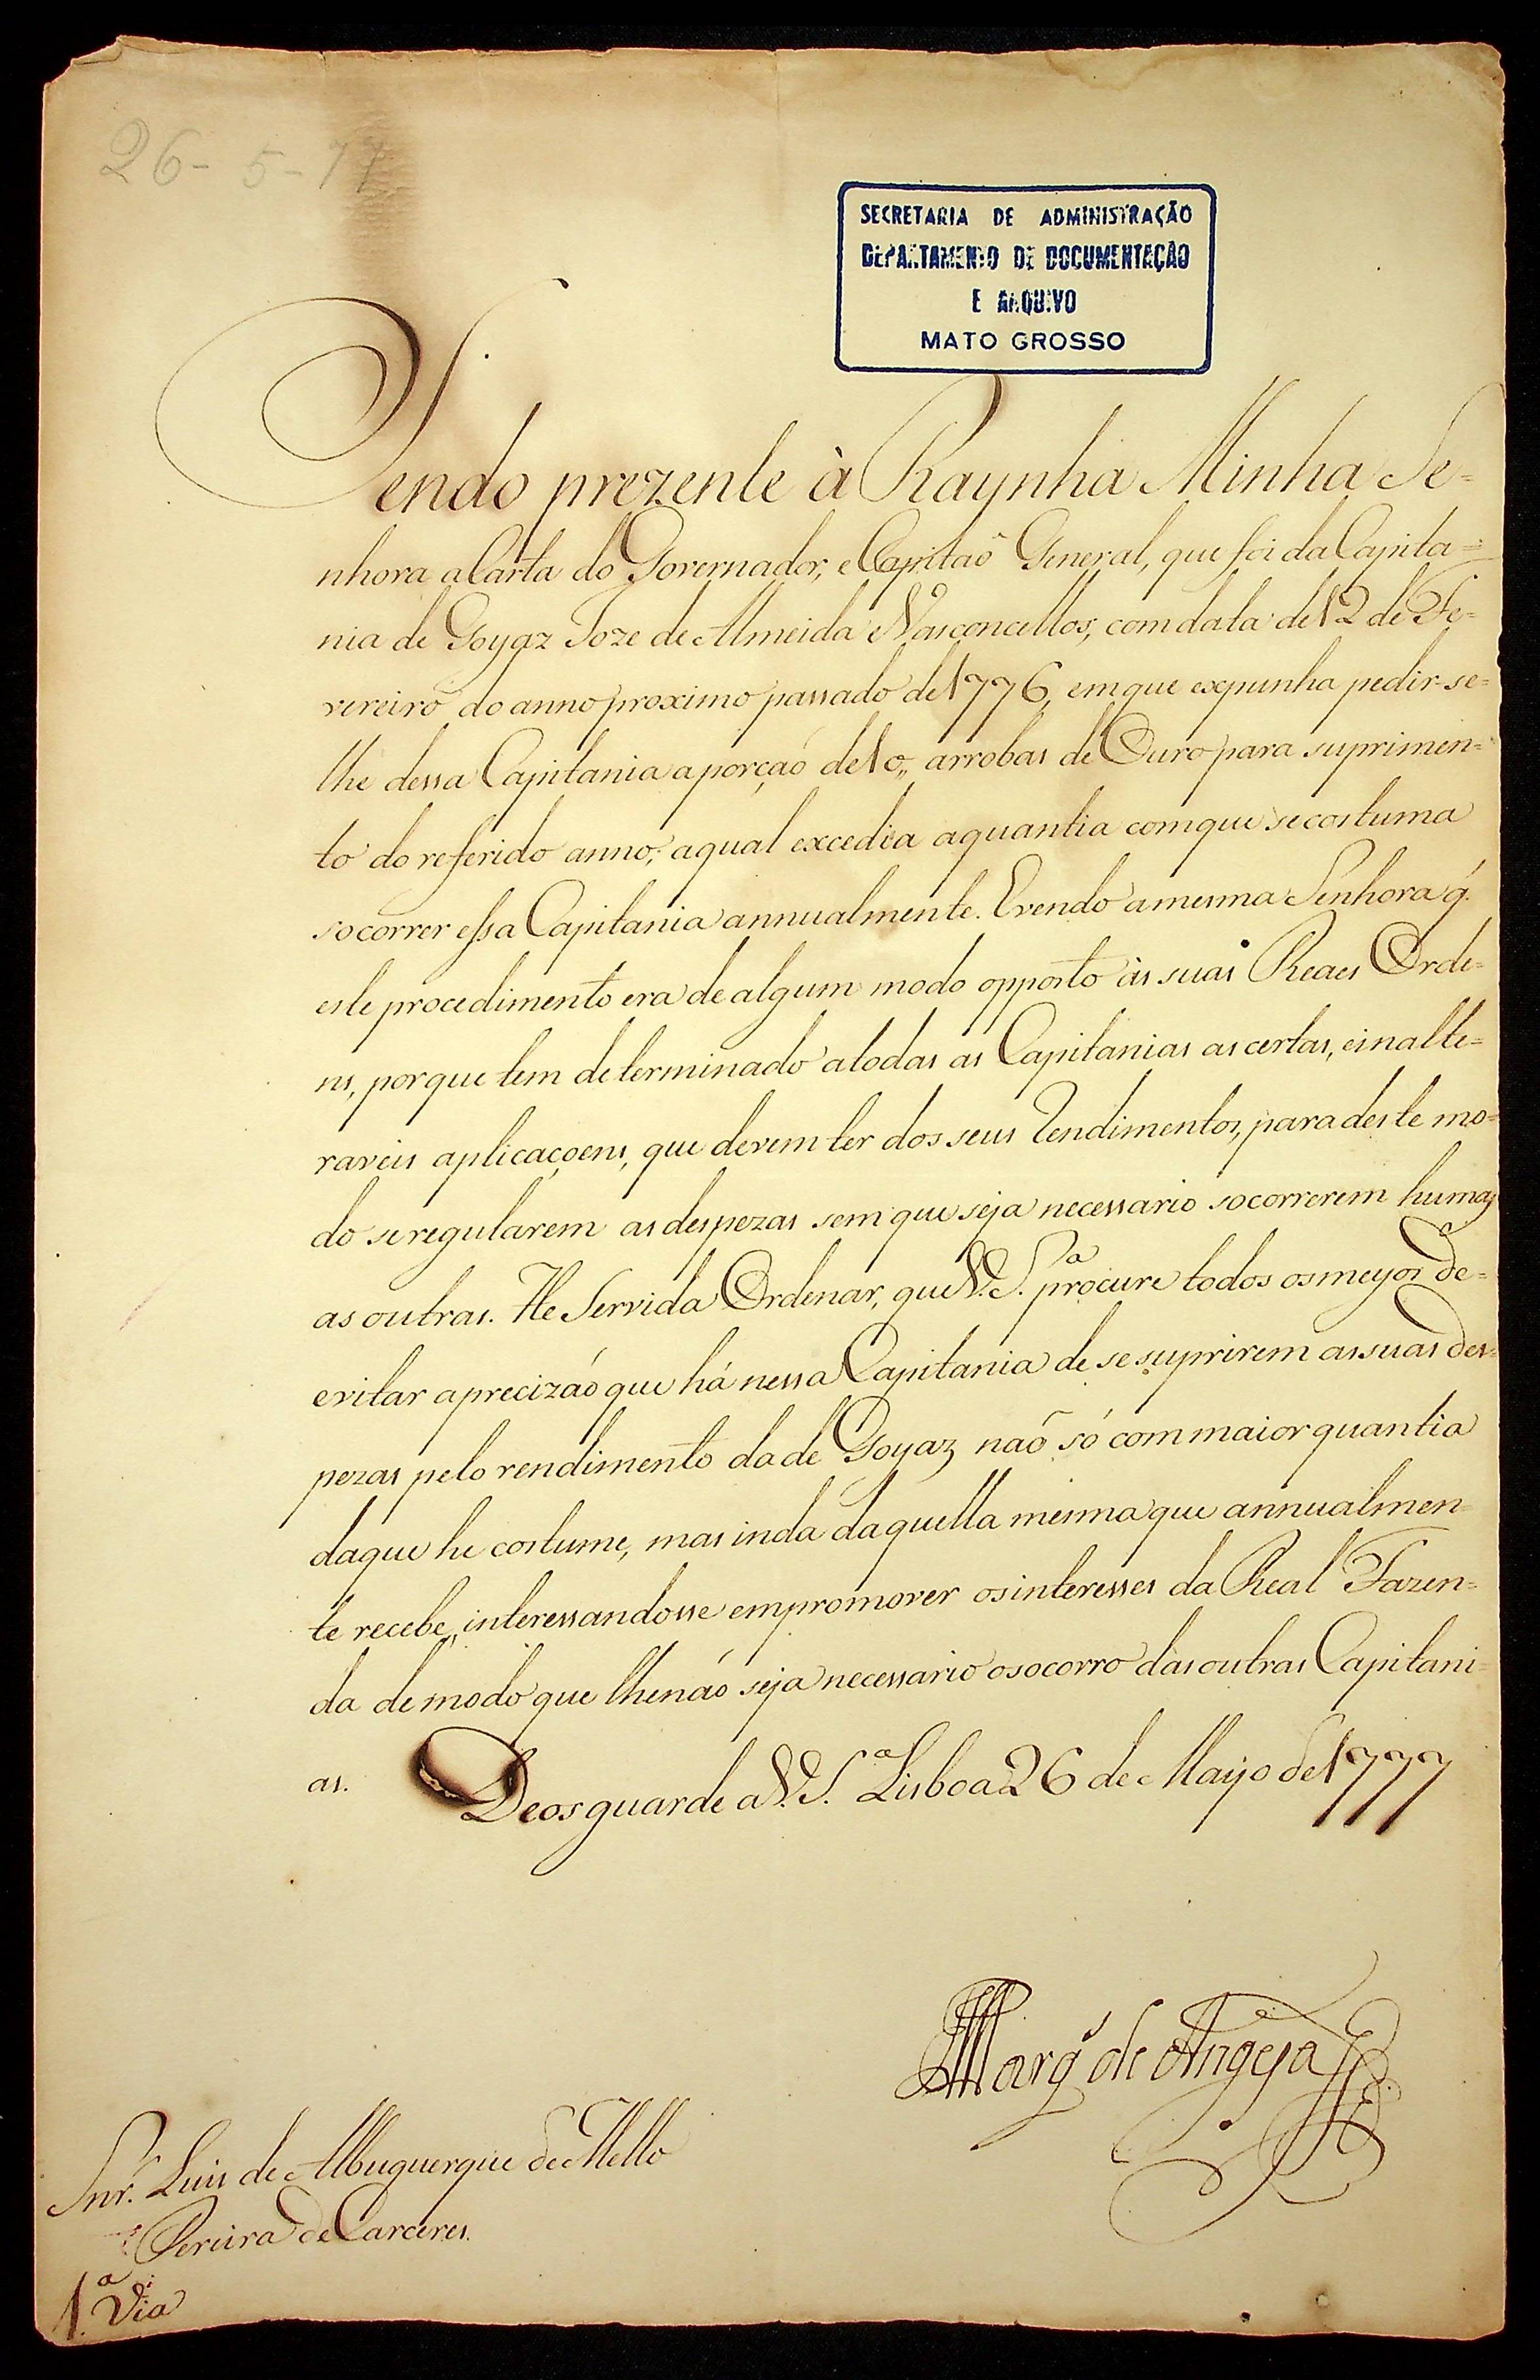 26-5-77
SECRETARIA DE ADMINISTRAÇÃO
DEPARTAMENTO DE DOCUMENTAÇÃO
E ARQUIVO
MATO GROSSO
Sendo prezente à Raynha Minha Se-
nhora a Carta do Governador, e Capitaõ General, que foi da Capita=
nia de Goyaz Joze de Almeida Vasconcellos, com data de 12 de Fe-
vereiro do anno proximo passado de 1776, em que expunha pedir-se-
lhe dessa Capitania a porçaõ de 10,, arrobas de Ouro para suprimen=
to do referido anno; a qual excedia a quantia com que se costuma
socorrer essa Capitania annualmente. E vendo a mesma Senhora q̃
este procedimento era de algum modo opposto ás suas Reaes Orde-
ns, porque tem determinado a todas as Capitanias as certas, e inalte-
raveis aplicaçoens, que devem ter dos seus Rendimentos, para deste mo-
do se regularem as despezas sem que seja necessario socorrerem humas
as outras. He Servida Ordenar, que V. S.ª procure todos os meyos de-
evitar a precizaõ que há nessa Capitania de se suprirem as suas des-
pezas pelo rendimento da de Goyaz naõ só com maior quantia
da que he costume, mas inda daquella mesma que annualmen=
te recebe, interessandosse em promover os interesses da Real Fazen=
da de modo que lhe naõ seja necessario o socorro das outras Capitani=
as.
Deos guarde a V. S.ª Lisboa 26 de Mayo de 1777
Marq.s de Angeja
Snr. Luis de Albuquerque de Mello
Pereira de Carceres.
1.ª Via